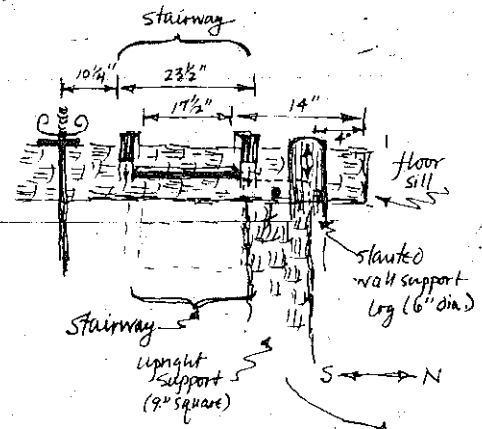 stairway
10 1/4"
23 1/2"
17 1/2"
14"
4"
floor
sill
slanted
wall support
log (6" dia.)
Stairway
upright
support
(9" square)
S N